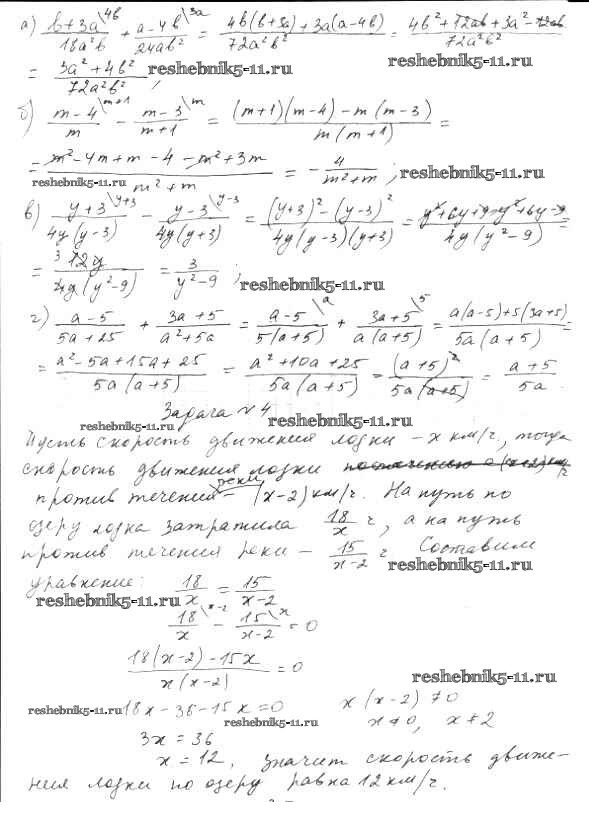 а) (b+3a)/(18a²b) \4b + (a-4b)/(24ab²) \3a = (4b(b+3a)+3a(a-4b))/(72a²b²) = (4b²+12ab+3a²-12ab)/(72a²b²)
= (3a²+4b²)/(72a²b²) ; reshebnik5-11.ru reshebnik5-11.ru
б) (m-4)/m \m+1 - (m-3)/(m+1) \m = ((m+1)(m-4)-m(m-3))/(m(m+1)) =
= (m²-4m+m-4-m²+3m)/(m²+m) = -4/(m²+m) ; reshebnik5-11.ru
reshebnik5-11.ru
в) (y+3)/(4y(y-3)) \y+3 - (y-3)/(4y(y+3)) \y-3 = ((y+3)²-(y-3)²)/(4y(y-3)(y+3)) = (y²+6y+9-y²+6y-9)/(4y(y²-9)) =
= 3 12y/(4y(y²-9)) = 3/(y²-9) ; reshebnik5-11.ru
г) (a-5)/(5a+25) + (3a+5)/(a²+5a) = (a-5)/(5(a+5)) \a + (3a+5)/(a(a+5)) \5 = (a(a-5)+5(3a+5))/(5a(a+5)) =
= (a²-5a+15a+25)/(5a(a+5)) = (a²+10a+25)/(5a(a+5)) = (a+5)²/(5a(a+5)) = (a+5)/(5a)
Задача №4
reshebnik5-11.ru reshebnik5-11.ru
Пусть скорость движения лодки – x км/г, тогда
скорость движения лодки
против течения реки – (x-2) км/г. На путь по
озеру лодка затратила 18/x г, а на путь
против течения реки – 15/(x-2) г Составим
reshebnik5-11.ru
уравнение: 18/x = 15/(x-2)
reshebnik5-11.ru
18/x \x-2 - 15/(x-2) \x = 0
(18(x-2)-15x)/(x(x-2)) = 0
reshebnik5-11.ru
reshebnik5-11.ru 18x-36-15x=0 x(x-2)≠0
reshebnik5-11.ru
3x=36 x≠0, x≠2
x=12, значит скорость движе-
ния лодки по озеру равна 12 км/г.